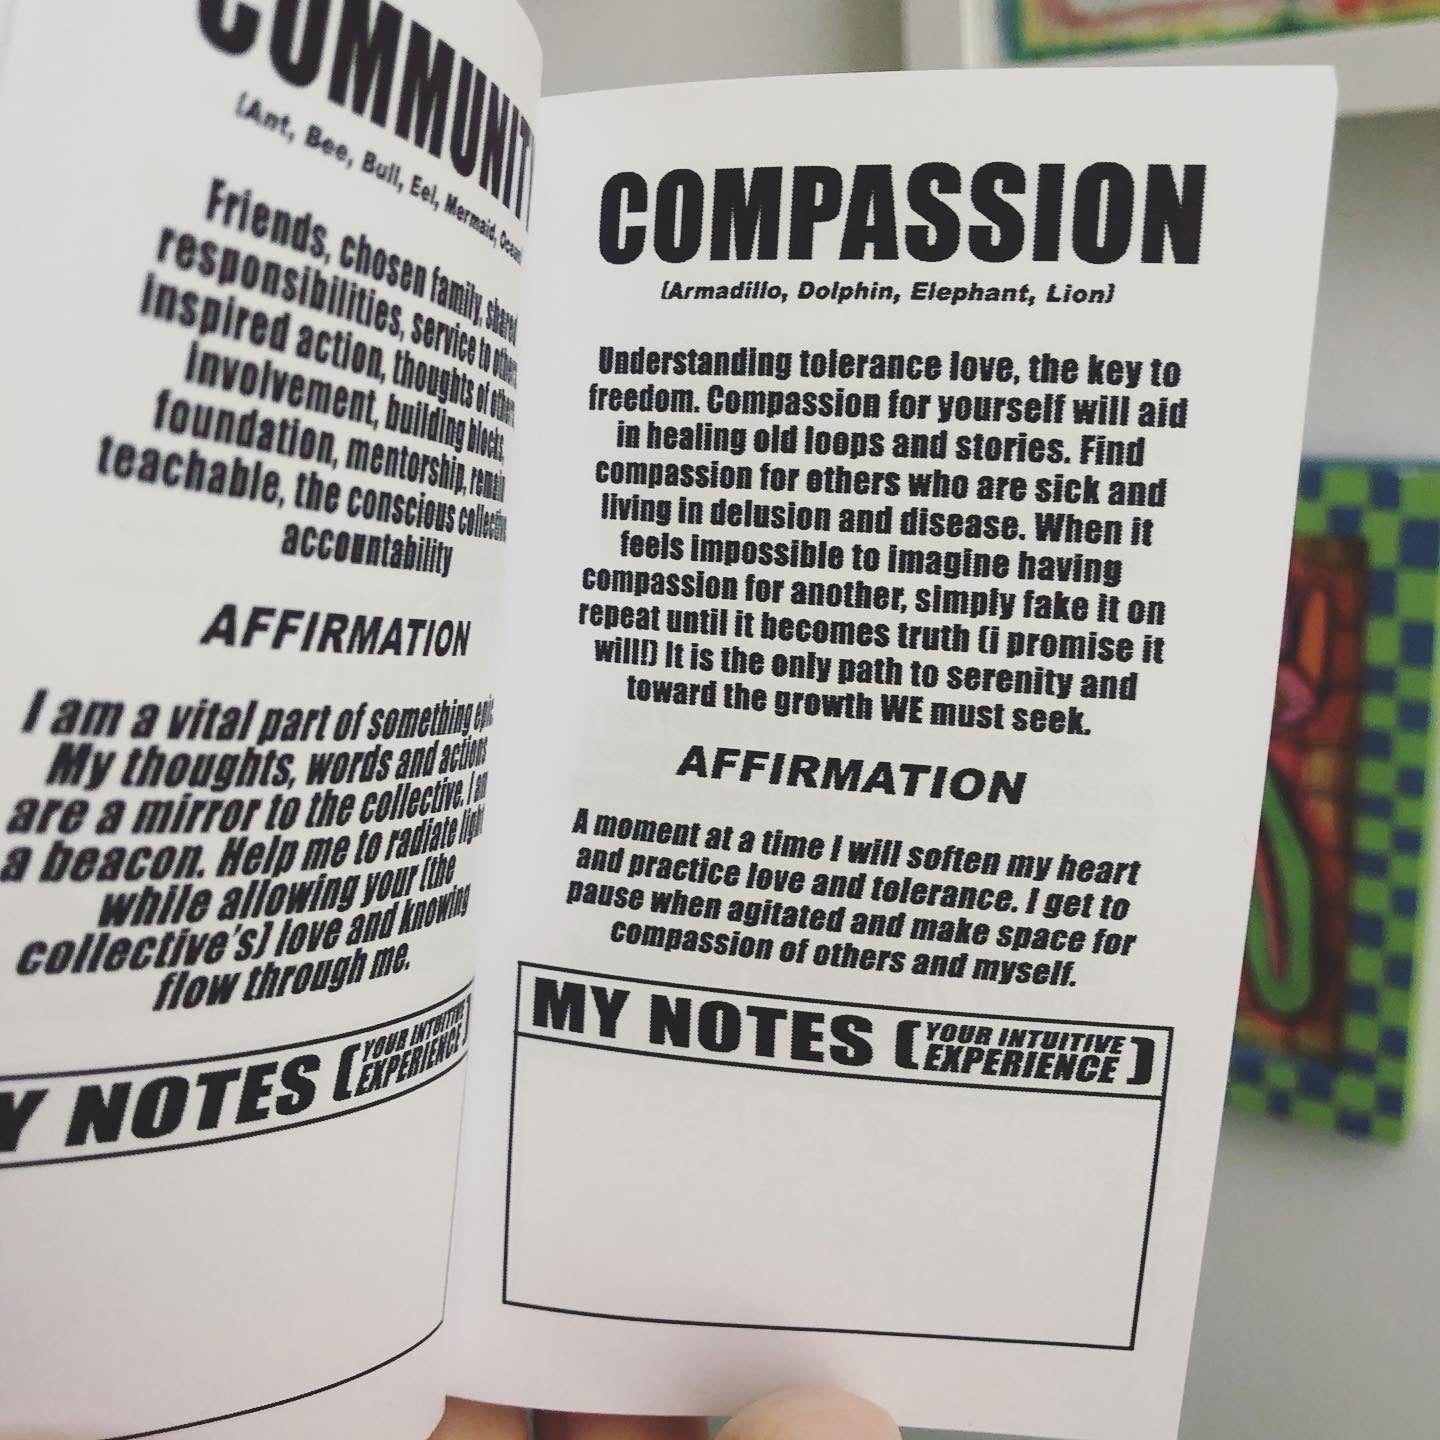 COMMUNIT
[Ant, Bee, Bull, Eel, Mermaid, Ocean]
Friends, chosen family, shared
responsibilities, service to others,
inspired action, thoughts of others,
involvement, building blocks,
foundation, mentorship, remain
teachable, the conscious collective,
accountability
AFFIRMATION
I am a vital part of something epic.
My thoughts, words and actions
are a mirror to the collective. I am
a beacon. Help me to radiate light
while allowing your [the
collective's] love and knowing
flow through me.
Y NOTES [YOUR INTUITIVE
EXPERIENCE]
COMPASSION
[Armadillo, Dolphin, Elephant, Lion]
Understanding tolerance love, the key to
freedom. Compassion for yourself will aid
in healing old loops and stories. Find
compassion for others who are sick and
living in delusion and disease. When it
feels impossible to imagine having
compassion for another, simply fake it on
repeat until it becomes truth (i promise it
will!) It is the only path to serenity and
toward the growth WE must seek.
AFFIRMATION
A moment at a time I will soften my heart
and practice love and tolerance. I get to
pause when agitated and make space for
compassion of others and myself.
MY NOTES [YOUR INTUITIVE
EXPERIENCE]